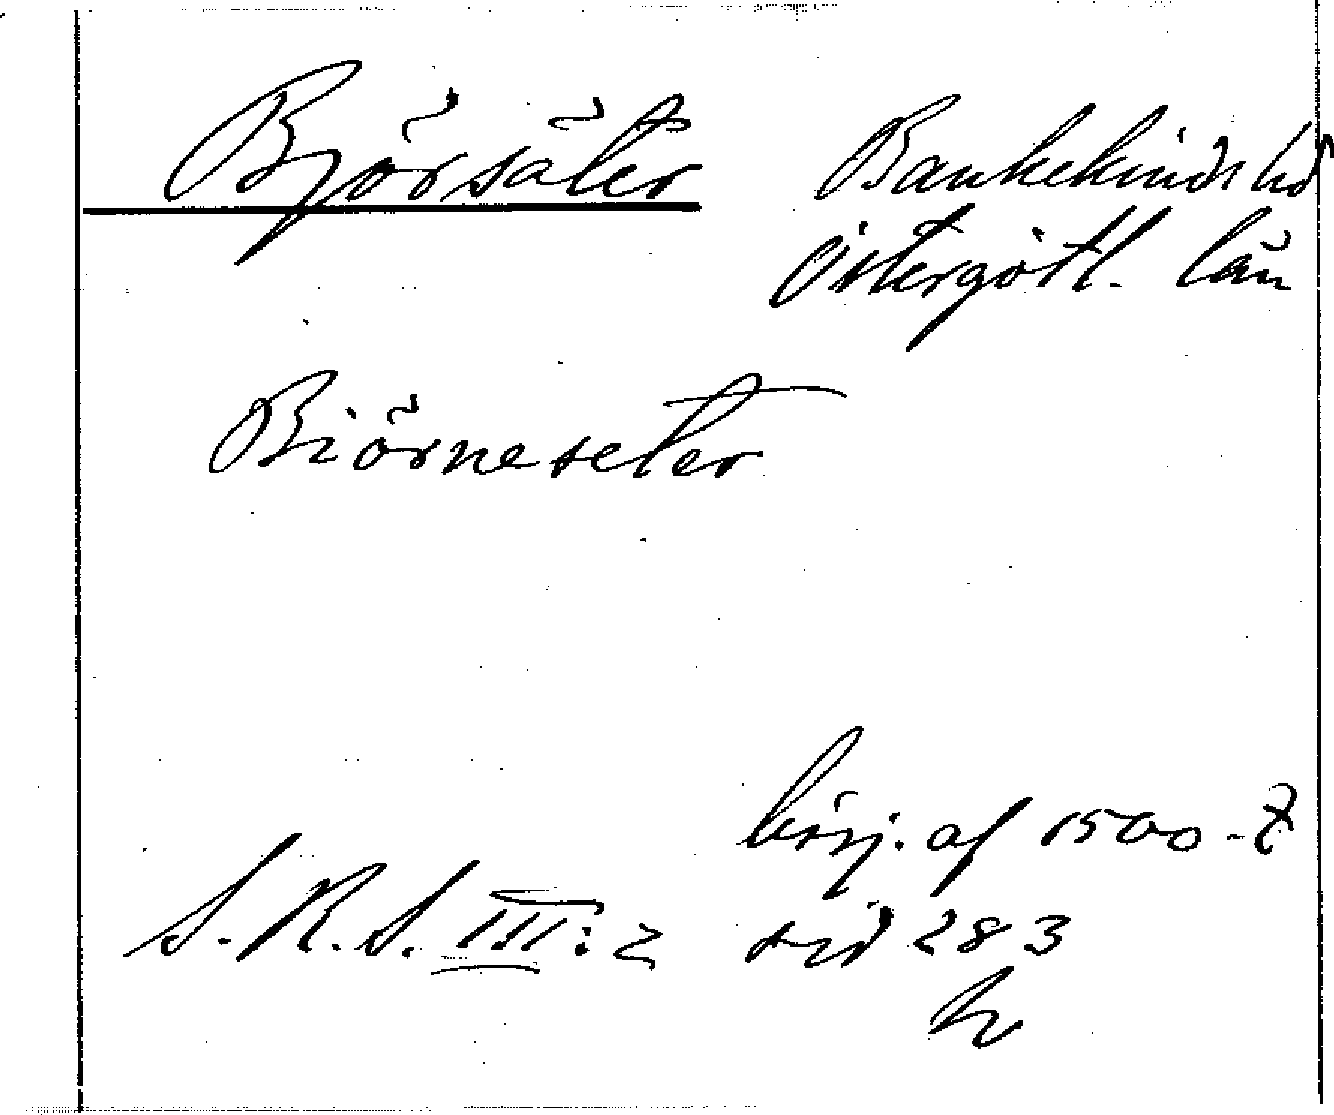 Björsäter
Bankekinds hd
Östergötl. län
Biörneseter
börj. af 1500-t
S.R.S. III:2 sid 283